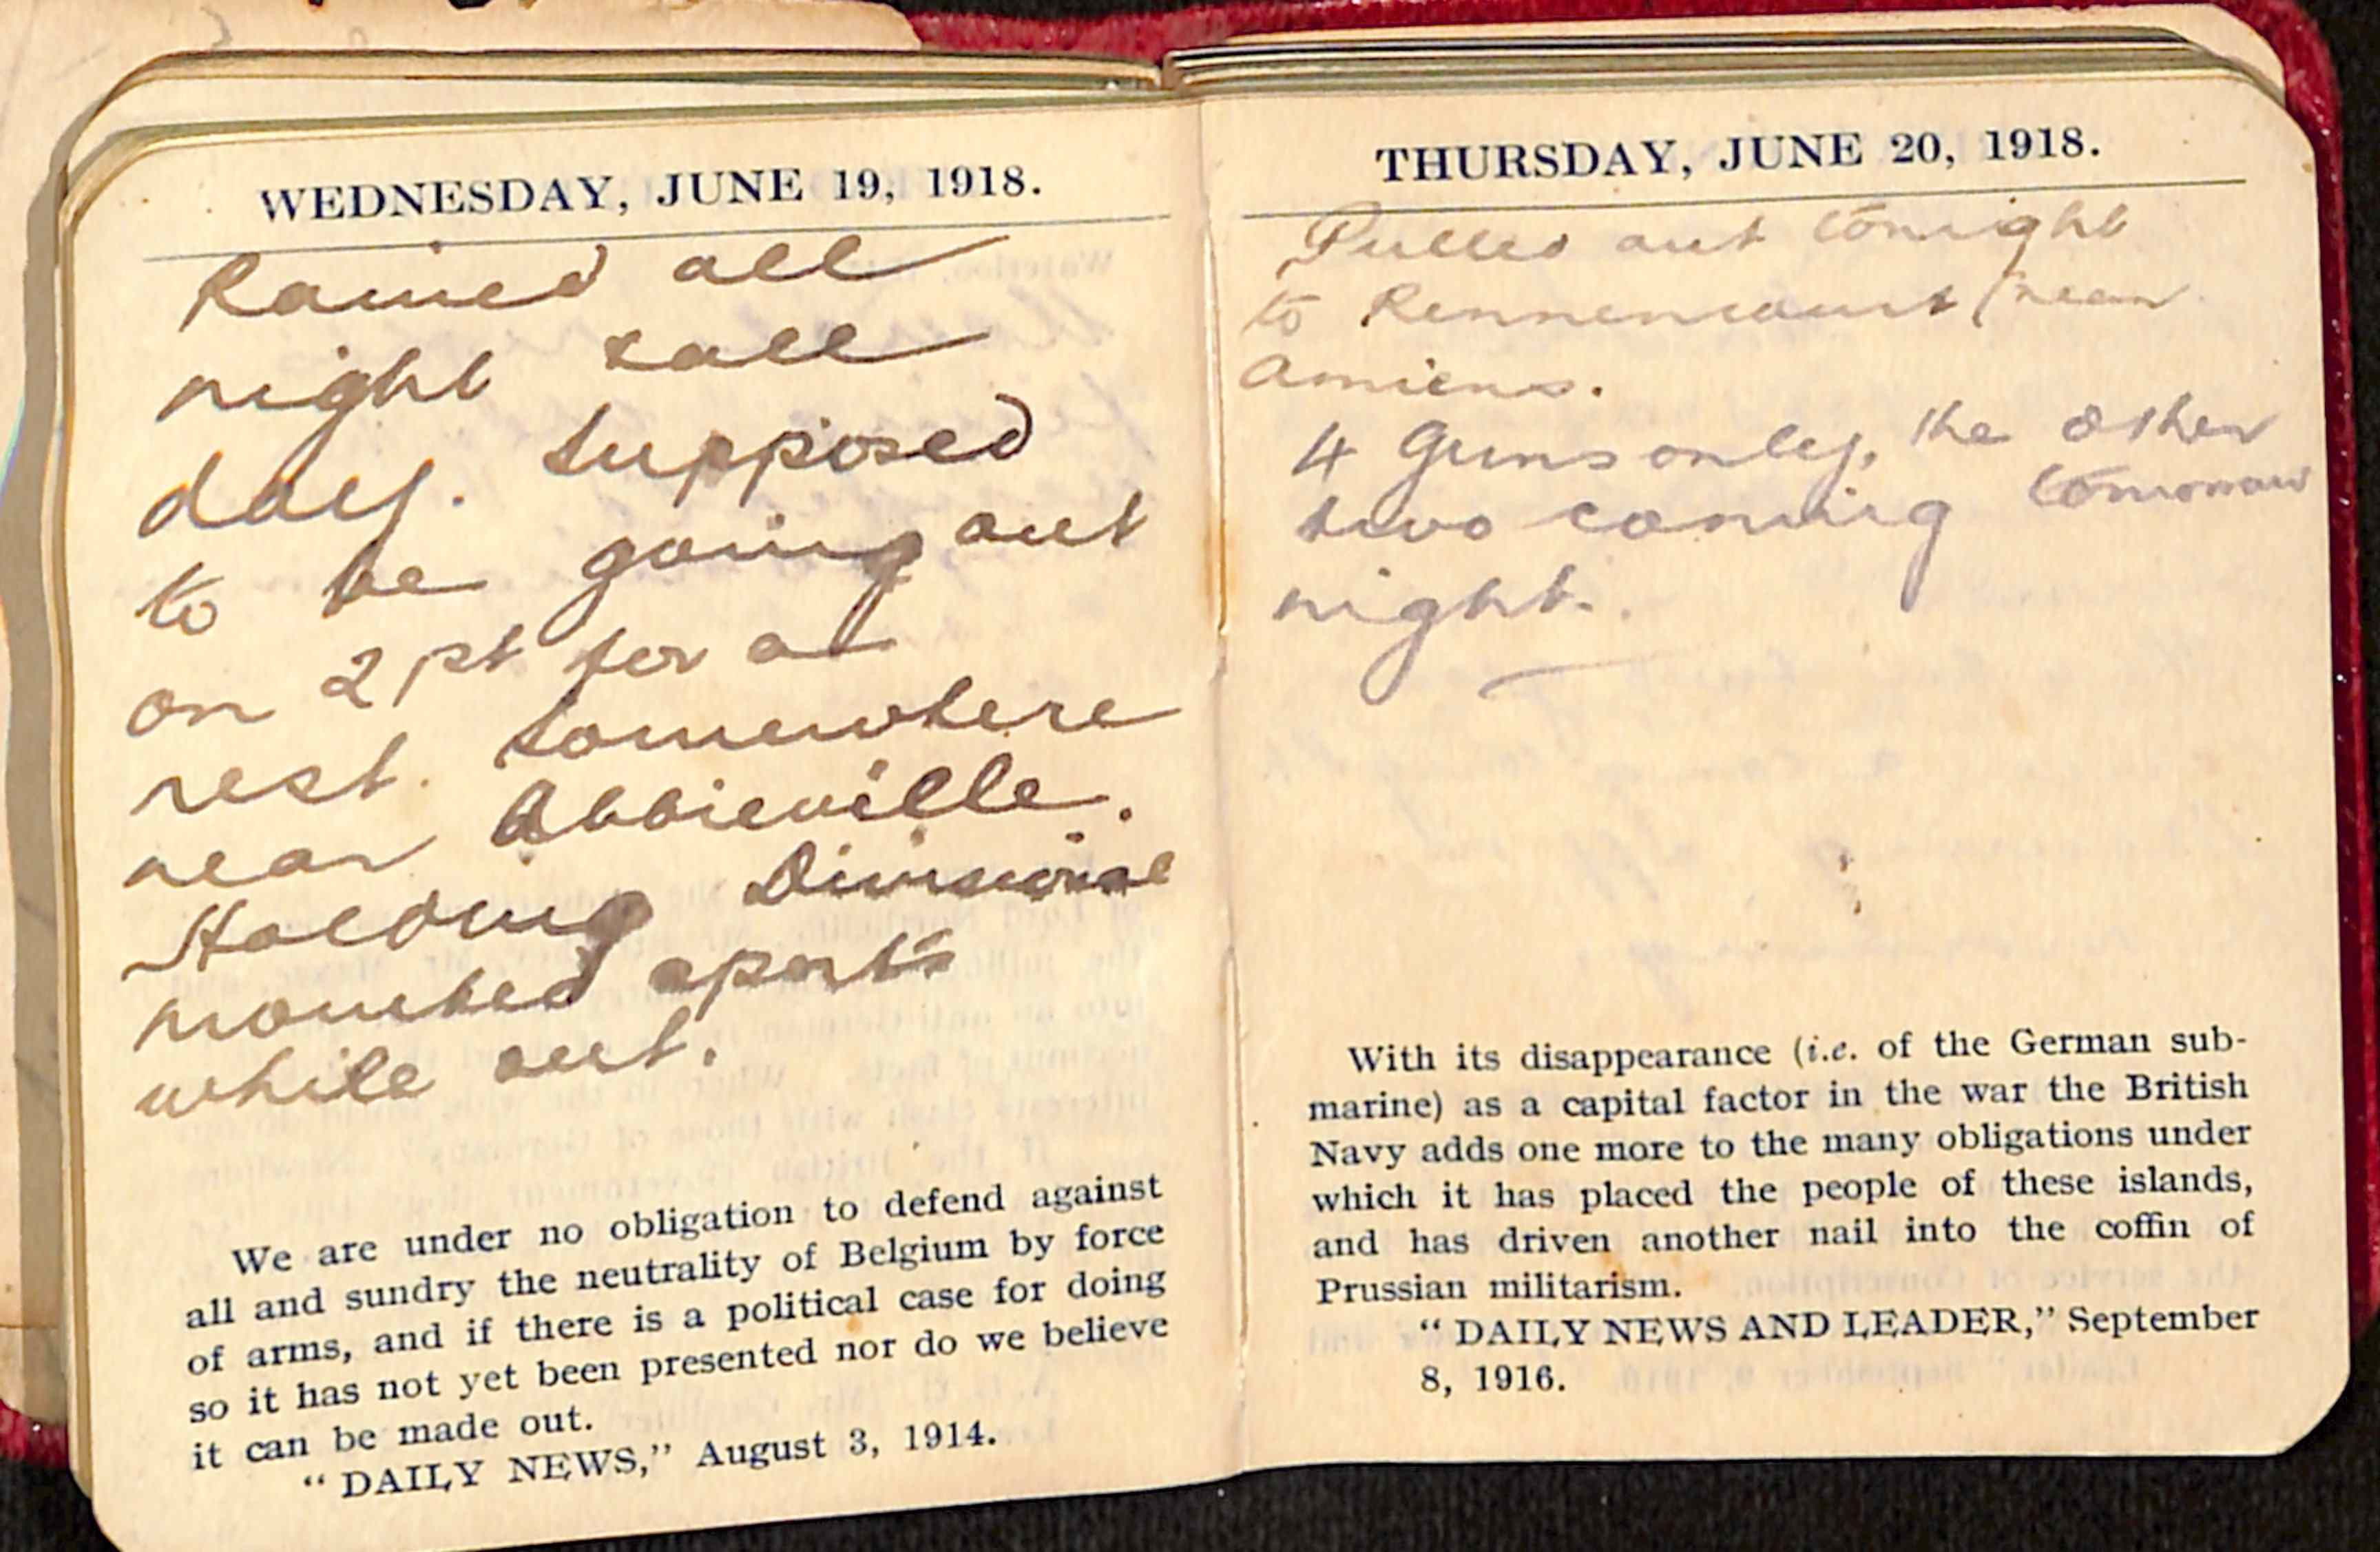 WEDNESDAY, JUNE 19, 1918.
Rained all
night & all
day. Supposed
to be going out
on 21st for a
rest. Somewhere
near Abbieville.
Holding Divisional
mounted sports
while out.
We are under no obligation to defend against
all and sundry the neutrality of Belgium by force
of arms, and if there is a political case for doing
so it has not yet been presented nor do we believe
it can be made out.
“ DAILY NEWS,” August 3, 1914.
THURSDAY, JUNE 20, 1918.
Pulled out tonight
to Rennencourt (near
Amiens.
4 Guns only, the other
two coming tomorrow
night.
With its disappearance (i.e. of the German sub-
marine) as a capital factor in the war the British
Navy adds one more to the many obligations under
which it has placed the people of these islands,
and has driven another nail into the coffin of
Prussian militarism.
“ DAILY NEWS AND LEADER,” September
8, 1916.